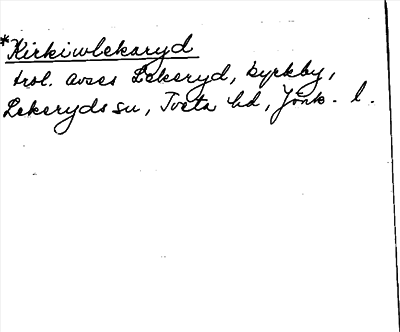 *Kirkiwlekaryd
trol. avses Lekeryd, kyrkby,
Lekeryds sn, Tveta hd, Jönk. l.